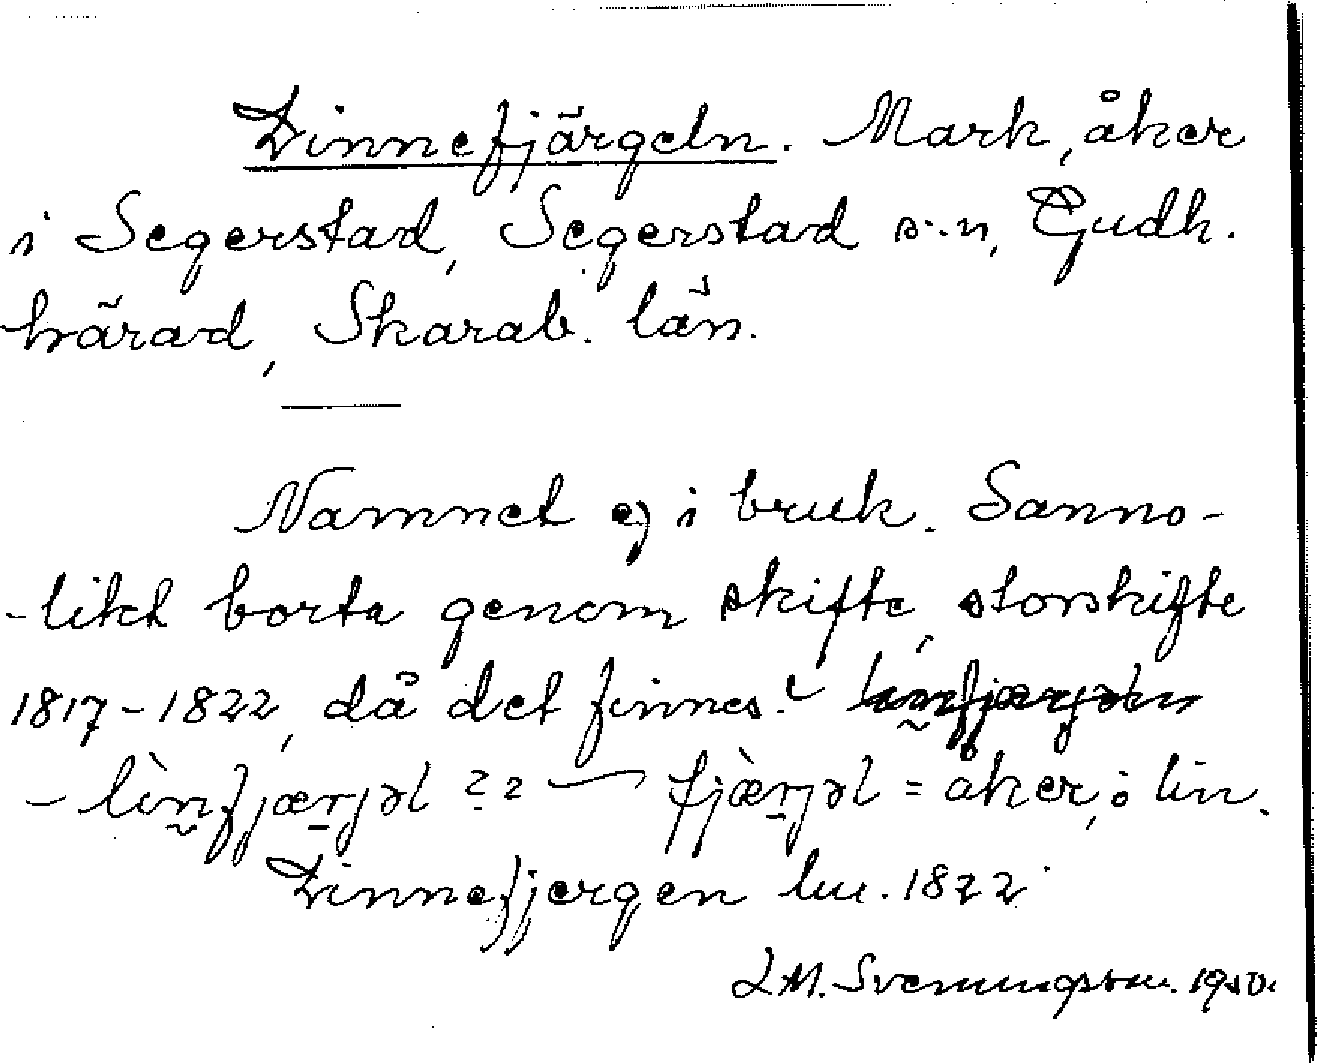 Dinnefjärgeln. Mark, åker
i Segerstad, Segerstad s:n, Gudh.
härad, Skarab. län.
Namnet ej i bruk. Sanno-
-likt borta genom skifte, storskifte
1817-1822, då det finnes.
- lìn̰fjæṟjəl ?? — fjæ̀ṟjəl = åker,: lin.
Dinnefjergen lm. 1822
L.M. Svenungsson. 1930.